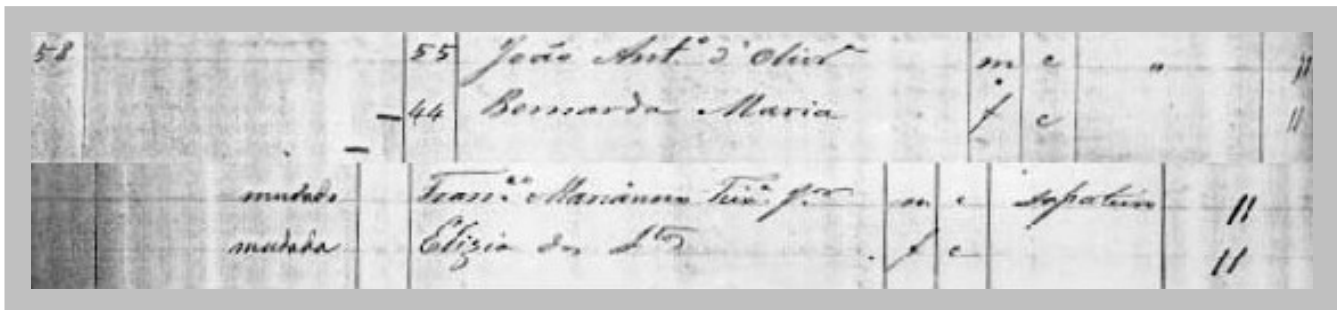 58 55 João Ant.º d'Olivr.ª m c " 11
44 Bernarda Maria f c 11
mudado Fran.co Marianno m c sapateiro 11
mudada Elizia dos S.tos f c 11